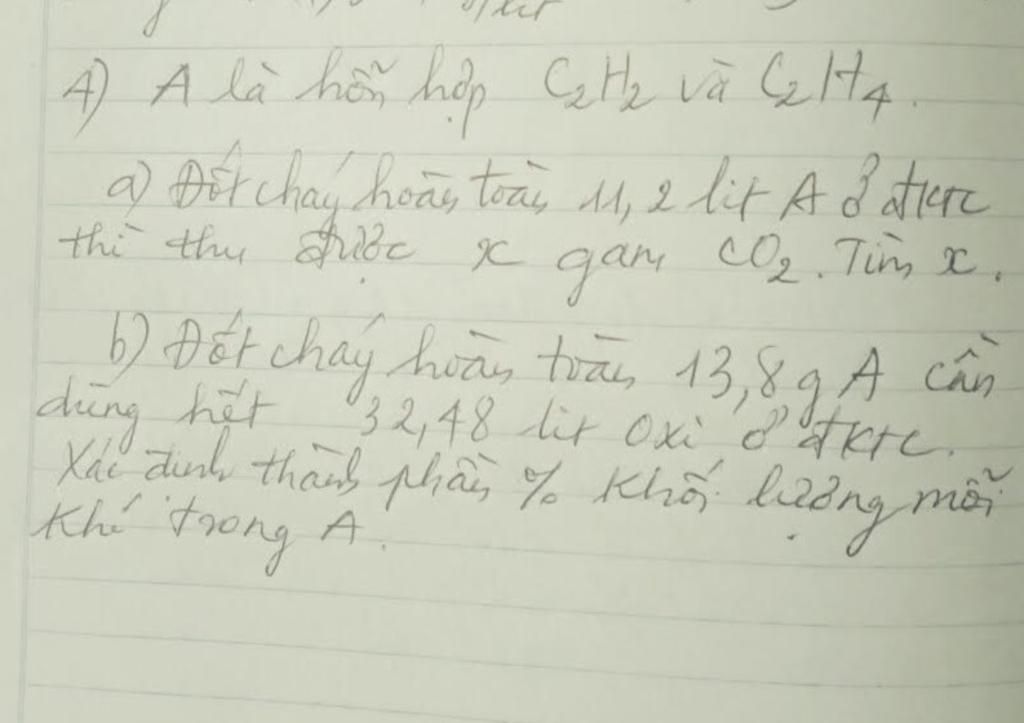 4) A là hỗn hợp C₂H₂ và C₂H₄.
a) Đốt cháy hoàn toàn 11,2 lit A ở đktc
thì thu được x gam CO₂. Tìm x.
b) Đốt cháy hoàn toàn 13,8 g A cần
dùng hết 32,48 lit oxi ở đktc.
Xác định thành phần % khối lượng mỗi
khí trong A.